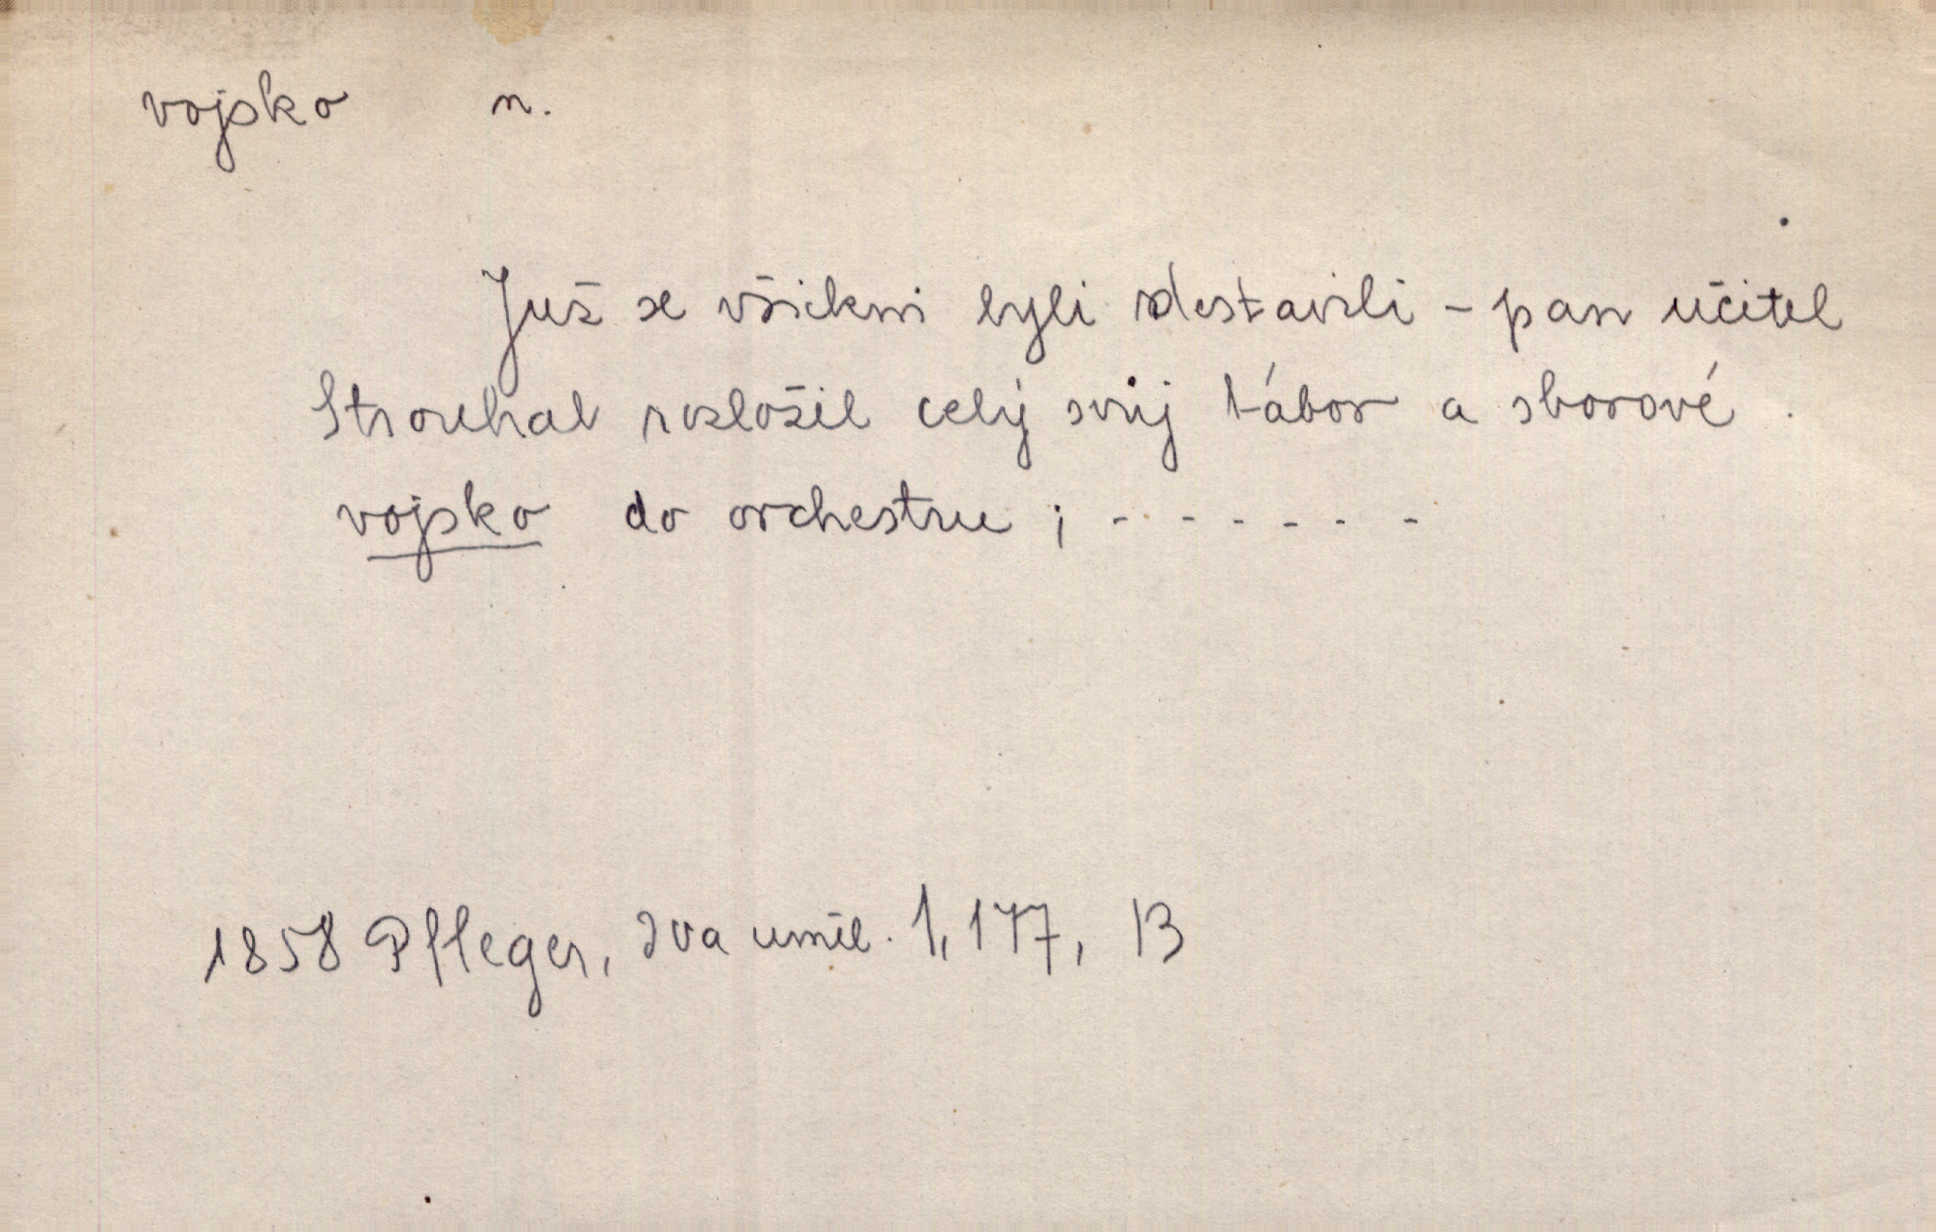 vojsko n.
Již se všickni byli dostavili - pan učitel
Strouhal rozložil celý svůj tábor a sborové
vojsko do orchestru ; - - - - - - -
1858 Pfleger, Dva uměl. I, 177, 13